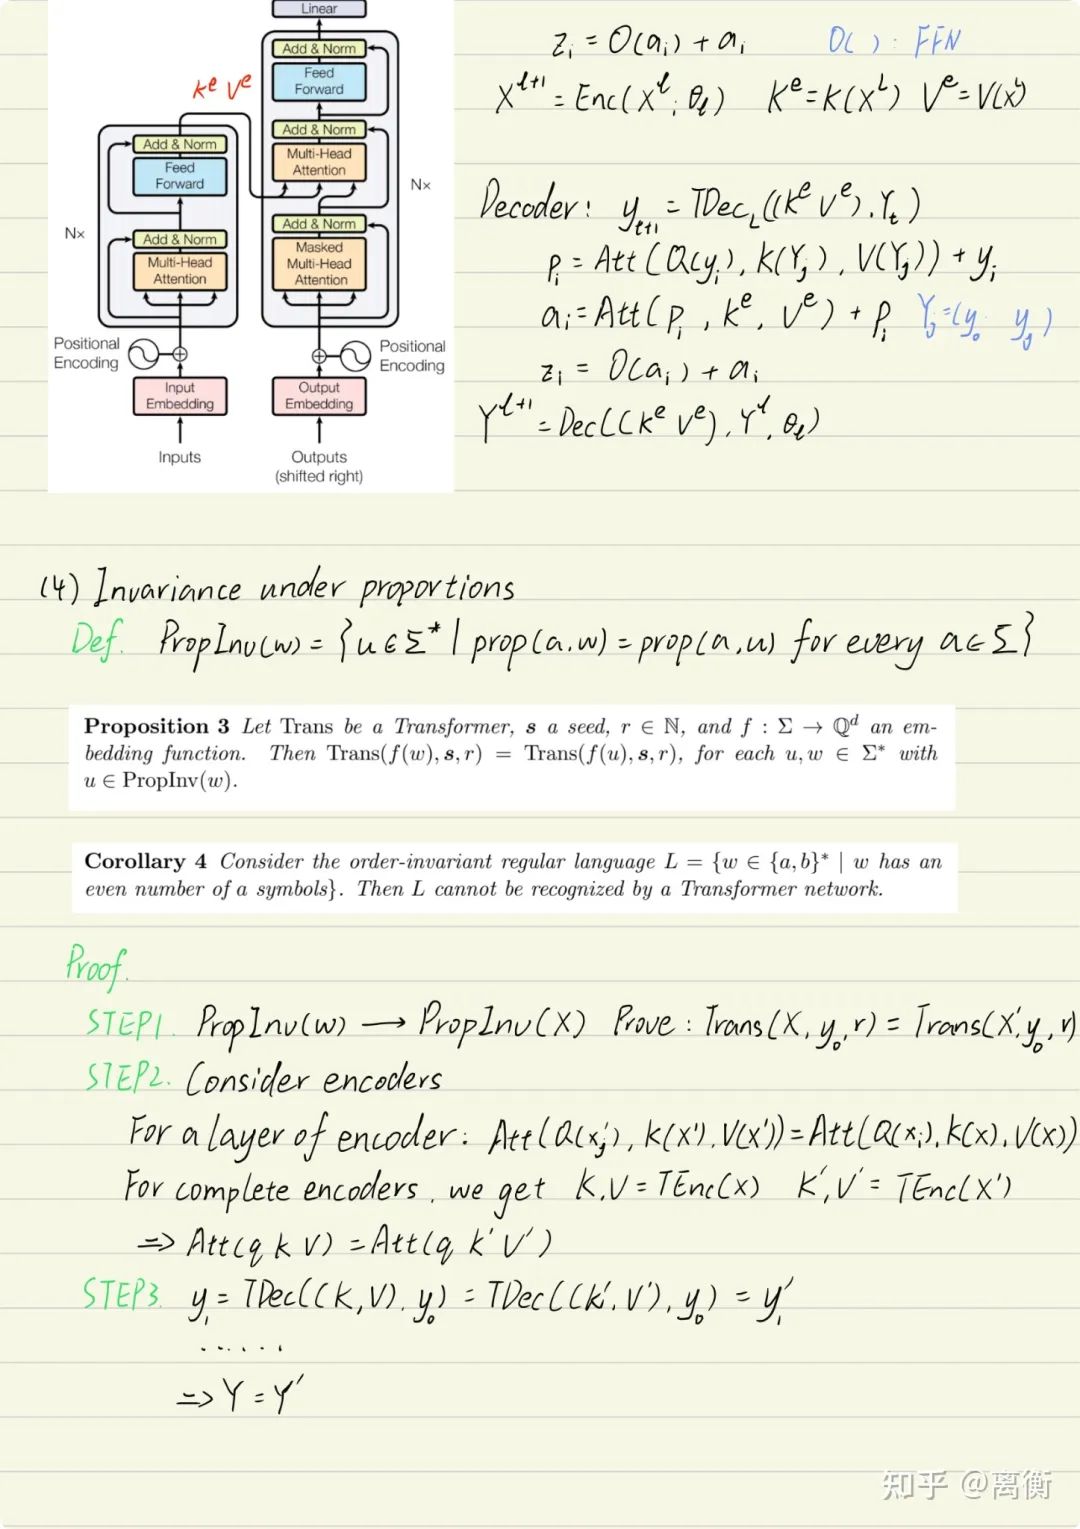 Linear
Add & Norm
Feed
Forward
Add & Norm
Multi-Head
Attention
Add & Norm
Masked
Multi-Head
Attention
Nx
K^e V^e
Add & Norm
Feed
Forward
Nx
Add & Norm
Multi-Head
Attention
Positional
Encoding
Positional
Encoding
Input
Embedding
Output
Embedding
Inputs
Outputs
(shifted right)
z_i = O(a_i) + a_i O( ) : FFN
X^{l+1} = Enc(X^l; θ_l) K^e = K(X^L) V^e = V(X^L)
Decoder: y_{t+1} = TDec_L((K^e V^e), Y_t)
p_i = Att(Q(y_i), K(Y_j), V(Y_j)) + y_i
a_i = Att(p_i, K^e, V^e) + p_i Y_j = (y_0 y_j)
z_i = O(a_i) + a_i
Y^{l+1} = Dec((K^e V^e), Y^l, θ_l)
(4) Invariance under proportions
Def. PropInv(w) = {u ∈ Σ* | prop(a,w) = prop(a,u) for every a ∈ Σ}
Proposition 3 Let Trans be a Transformer, s a seed, r ∈ ℕ, and f : Σ → ℚ^d an em-
bedding function. Then Trans(f(w), s, r) = Trans(f(u), s, r), for each u, w ∈ Σ* with
u ∈ PropInv(w).
Corollary 4 Consider the order-invariant regular language L = {w ∈ {a, b}* | w has an
even number of a symbols}. Then L cannot be recognized by a Transformer network.
Proof.
STEP1. PropInv(w) → PropInv(X) Prove: Trans(X, y_0, r) = Trans(X', y_0, r)
STEP2. Consider encoders
For a layer of encoder: Att(Q(x'_j), K(X'), V(X')) = Att(Q(x_i), K(X), V(X))
For complete encoders, we get K,V = TEnc(X) K',V' = TEnc(X')
⇒ Att(q K V) = Att(q K' V')
STEP3. y_1 = TDec((K,V), y_0) = TDec((K',V'), y_0) = y_1'
......
⇒ Y = Y'
知乎 @离衡